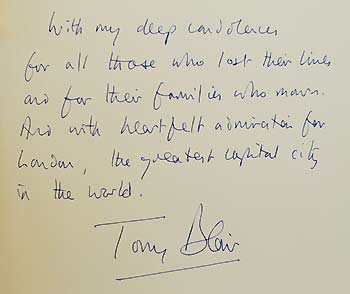 With my deep condolences
for all those who lost their lives
and for their families who mourn.
And with heartfelt admiration for
London, the greatest capital city
in the world.
Tony Blair